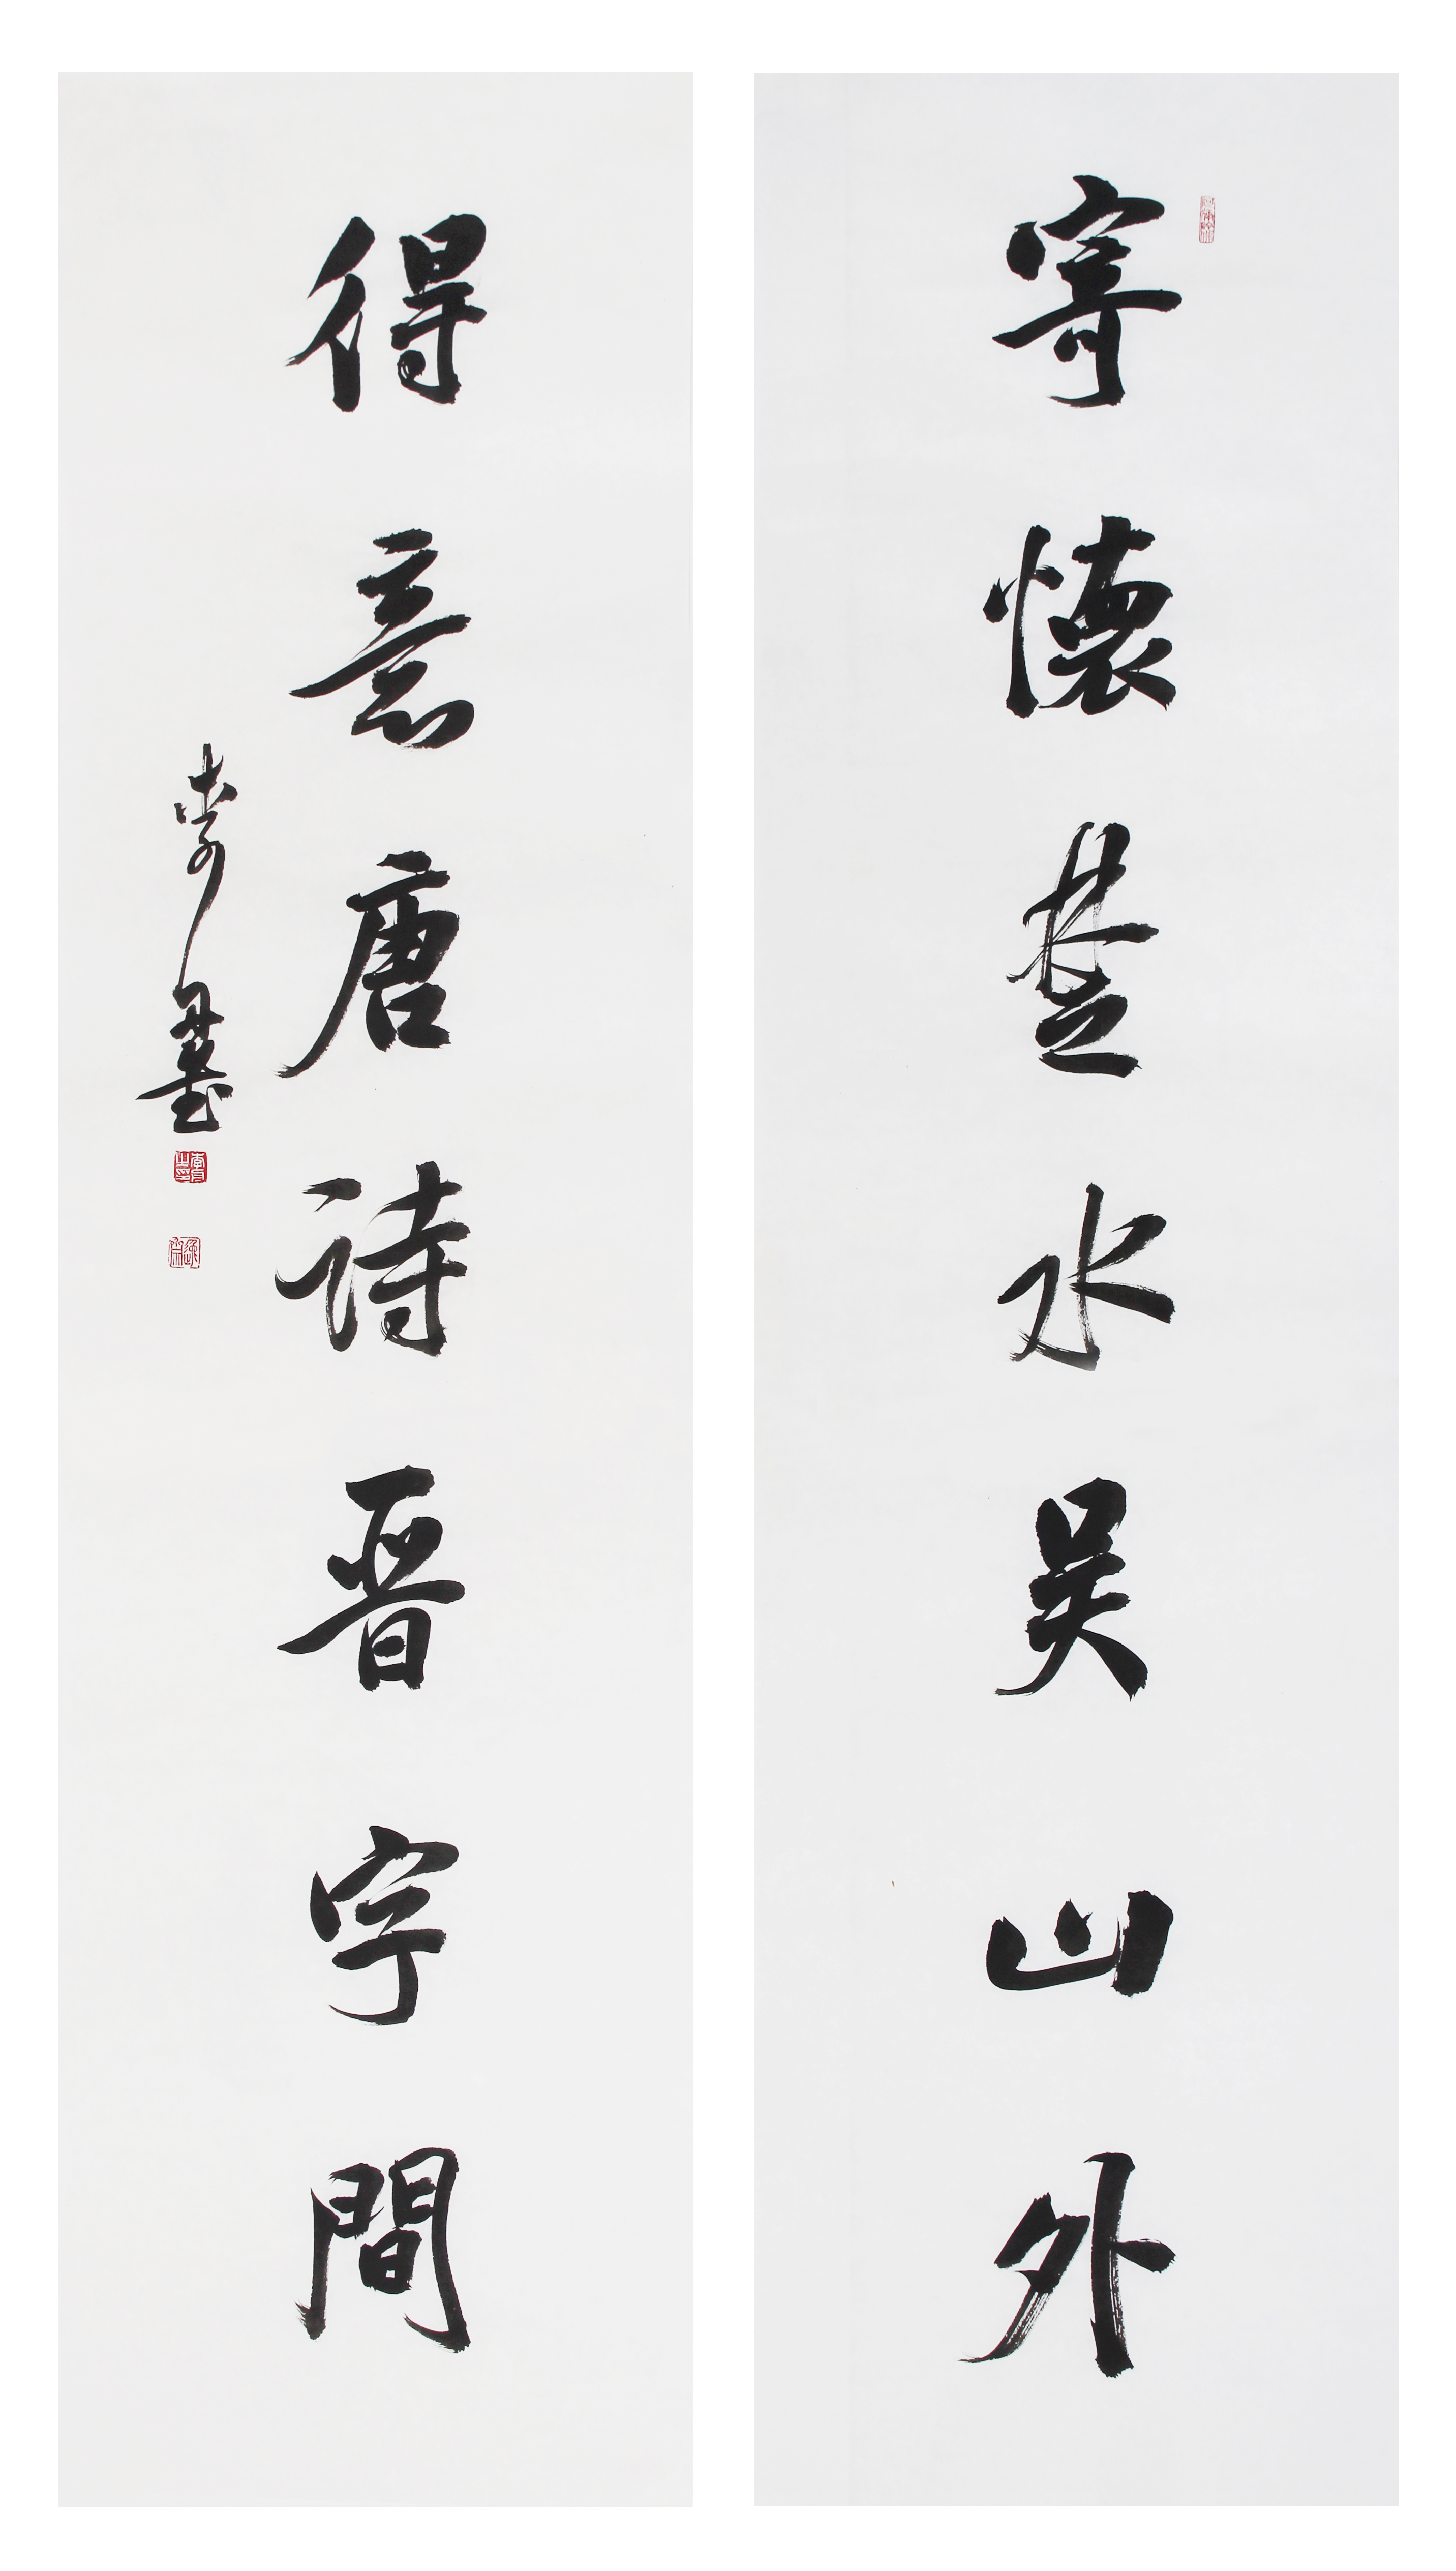 寄懷楚水吴山外
得意唐詩晉字間